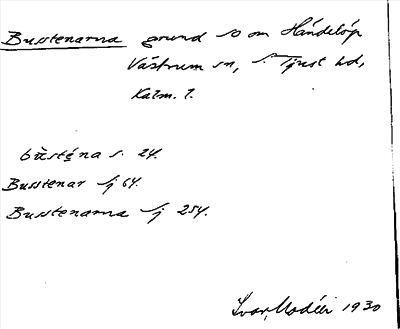 Busstenarna grund so om Händelöp
Västrum sn, S. Tjust hd,
Kalm. l.
bùsténa s. 24.
Busstenar Sj 64.
Busstenarna Sj 254.
Ivar Modéer 1930